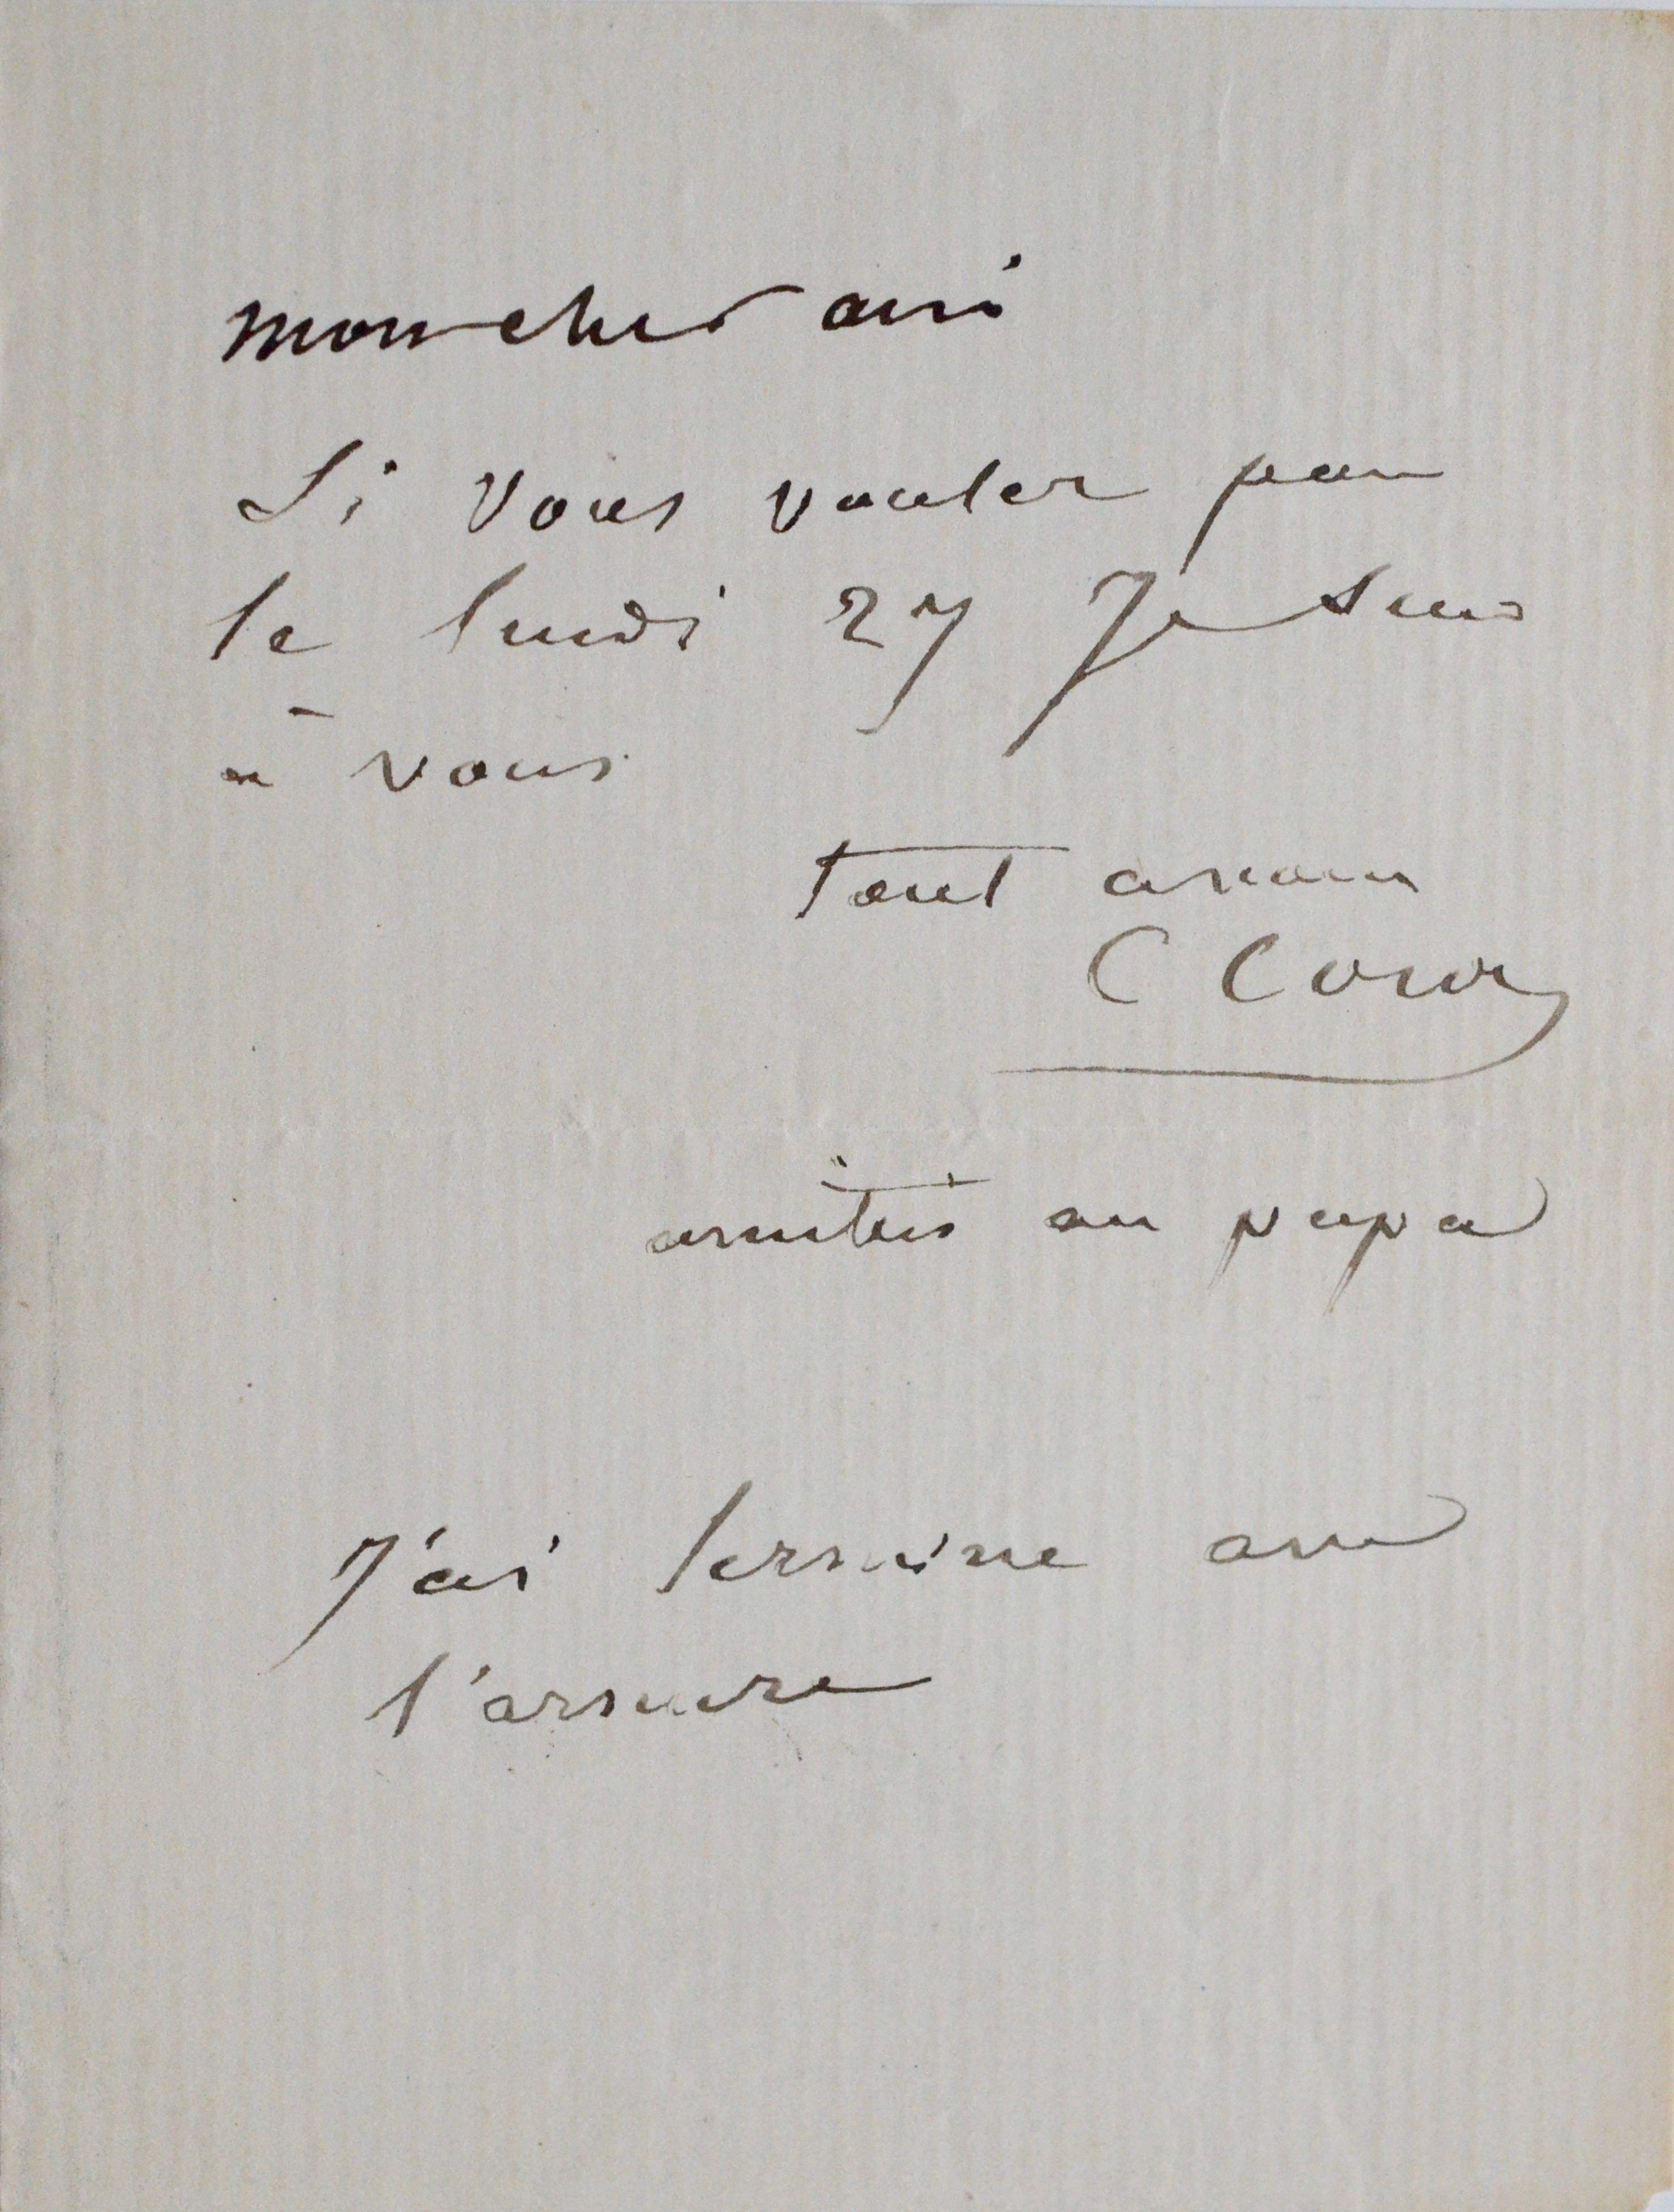 Mon cher ami
Si vous voulez pour
le lundi 27 Je suis
à vous
Tout à vous
C Corot
amitiés au papa
J'ai terminé avec
l'armure